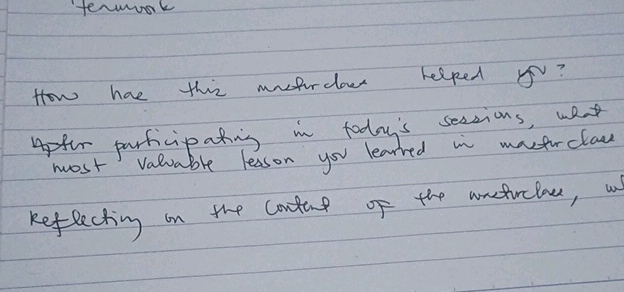 teamwork
How has this masterclass helped you?
After participating in today's sessions, what
most valuable lesson you learned in masterclass
Reflecting on the content of the masterclass,